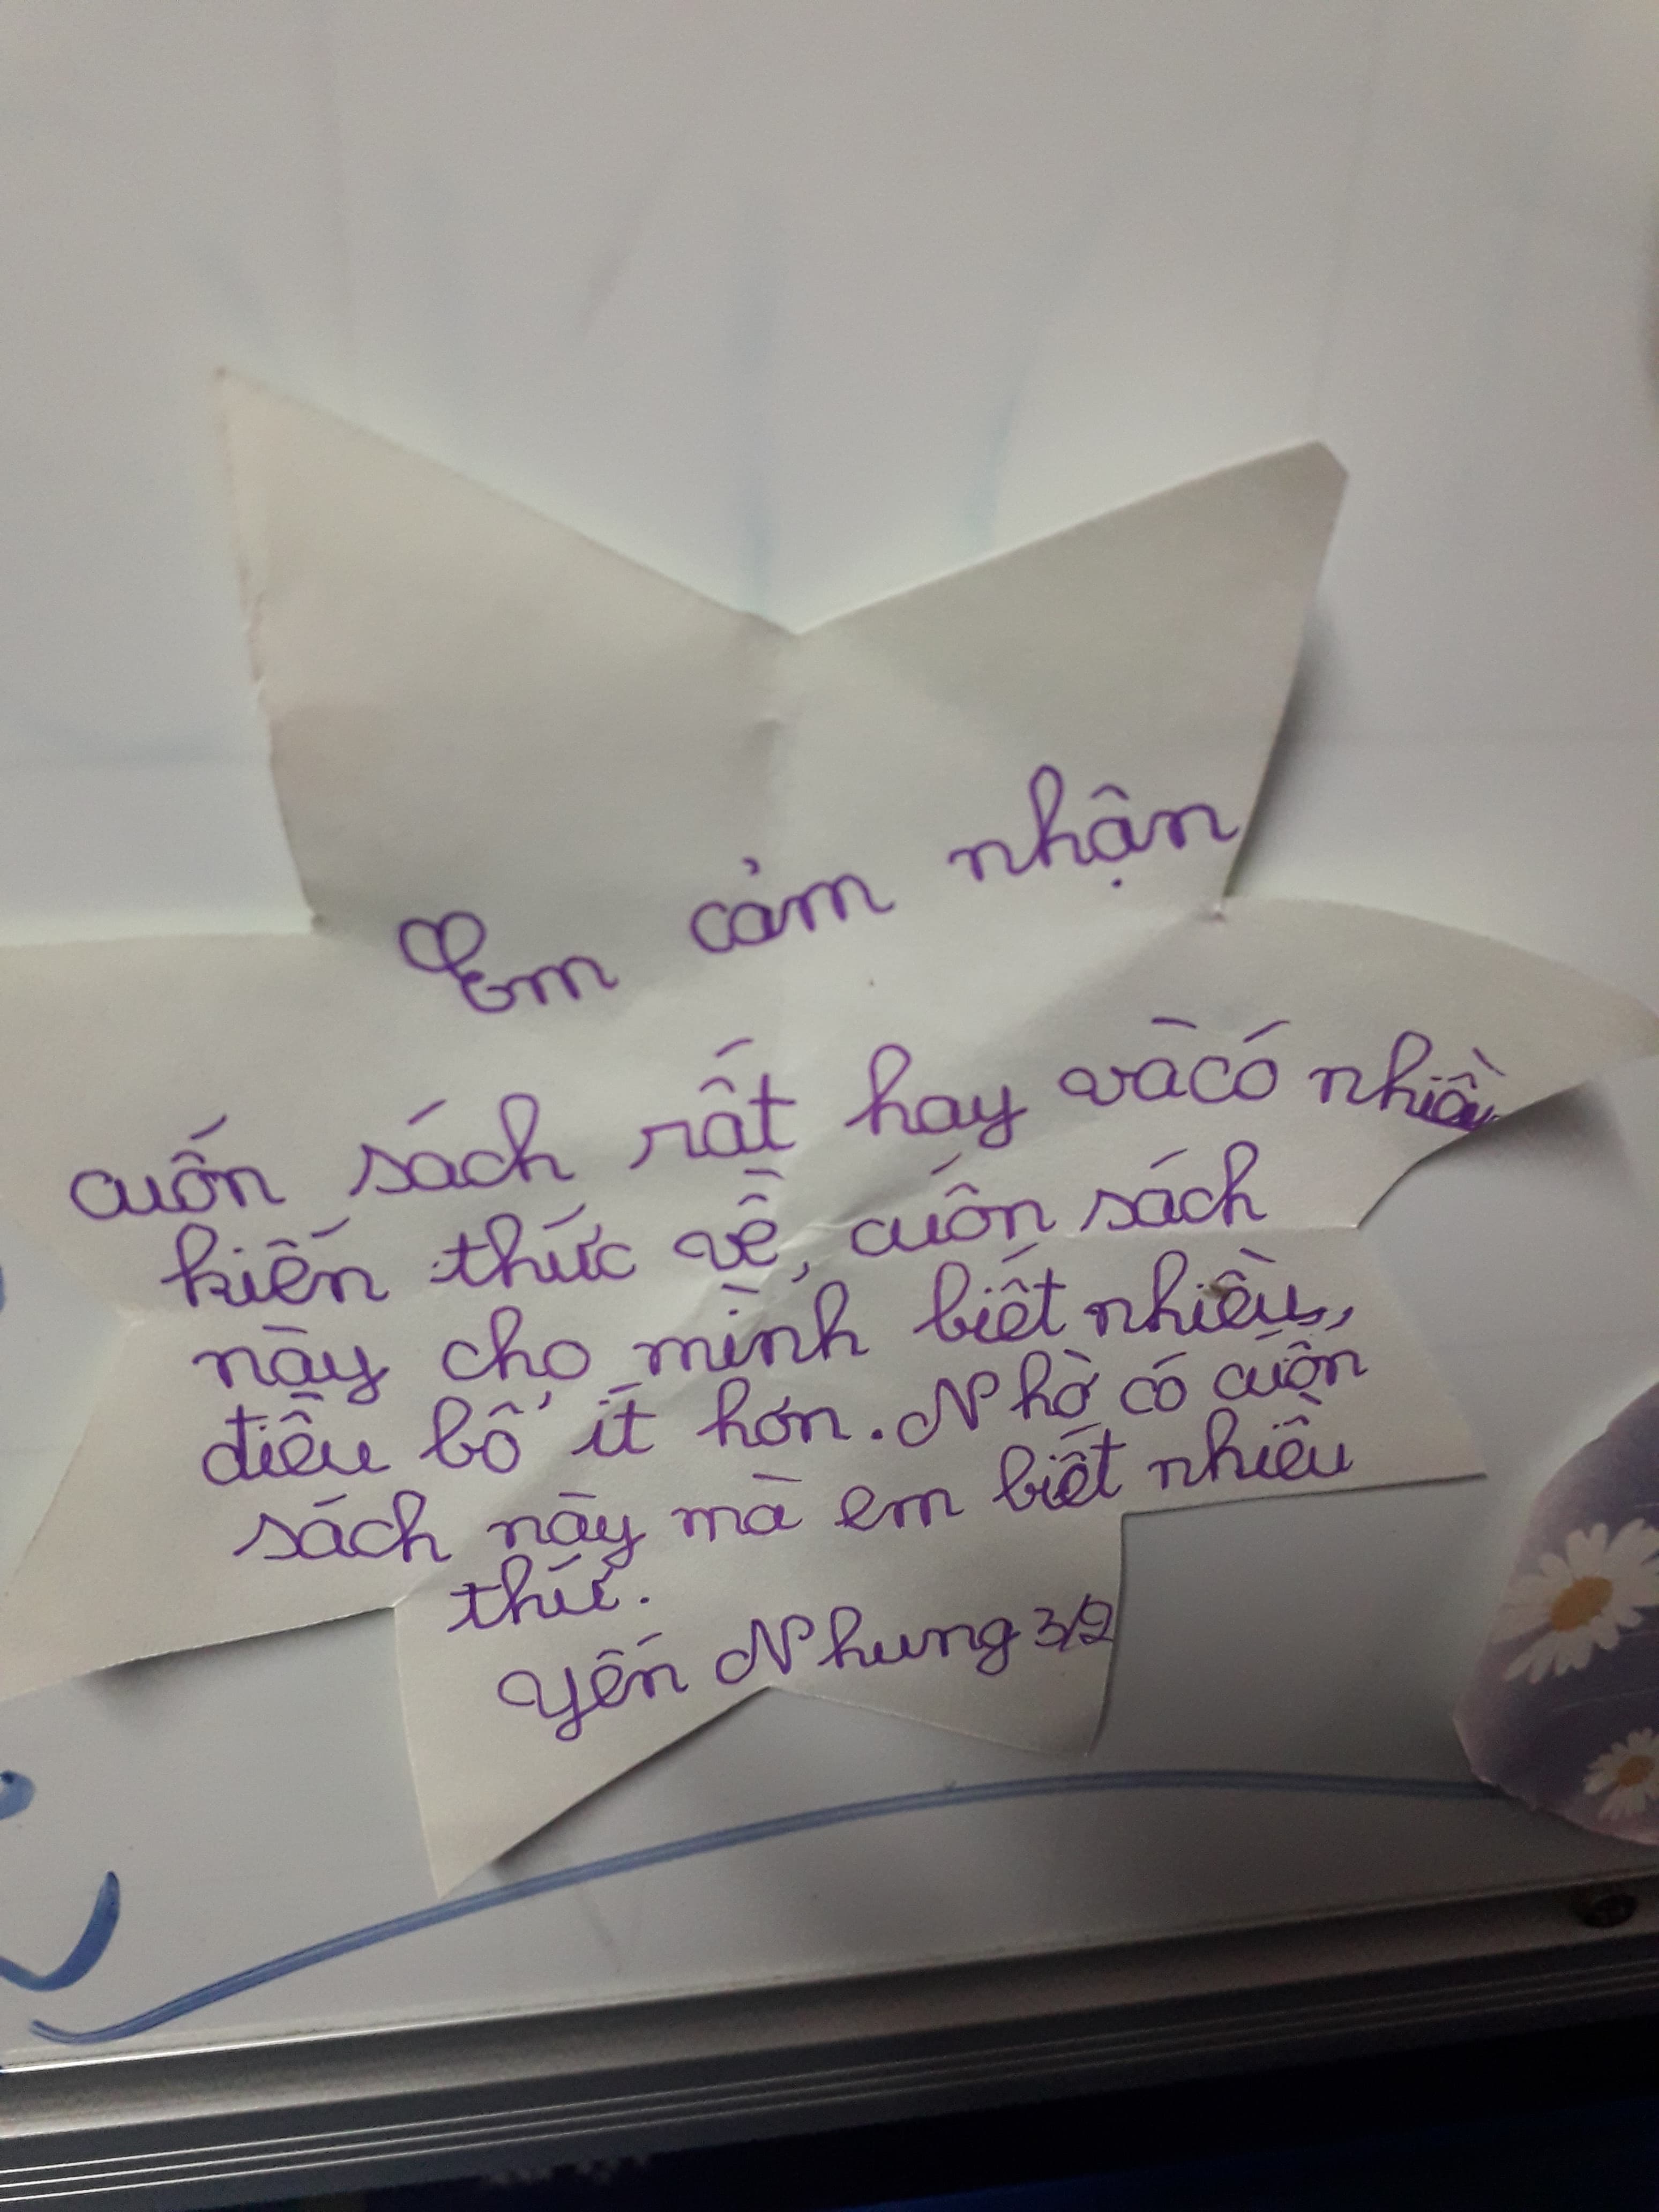 Em cảm nhận
cuốn sách rất hay và có nhiều
kiến thức về, cuốn sách
này cho mình biết nhiều,
điều bổ ít hơn. Nhờ có cuốn
sách này mà em biết nhiều
thứ.
Yến Nhung 3/2